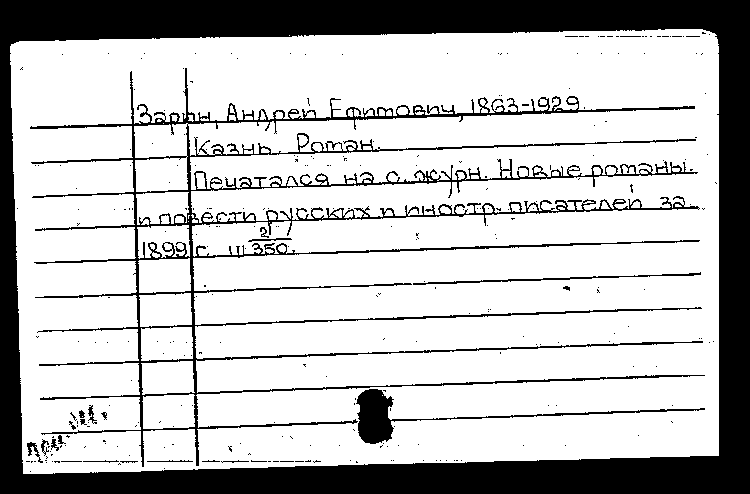 Зарин, Андрей Ефимович, 1863-1929.
Казнь. Роман.
Печатался на с. журн. Новые романы
и повести русских и иностр. писателей за
1899 г. Ш 2/350.